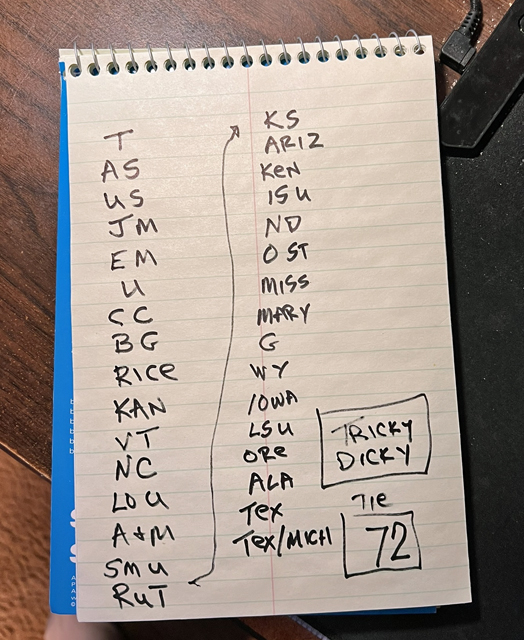 T
AS
US
JM
EM
U
CC
BG
RICE
KAN
VT
NC
LOU
A+M
SMU
RUT
KS
ARIZ
KEN
ISU
ND
OST
MISS
MARY
G
WY
IOWA
LSU
ORE
ALA
TEX
TEX/MICH
TRICKY
DICKY
TIE
72